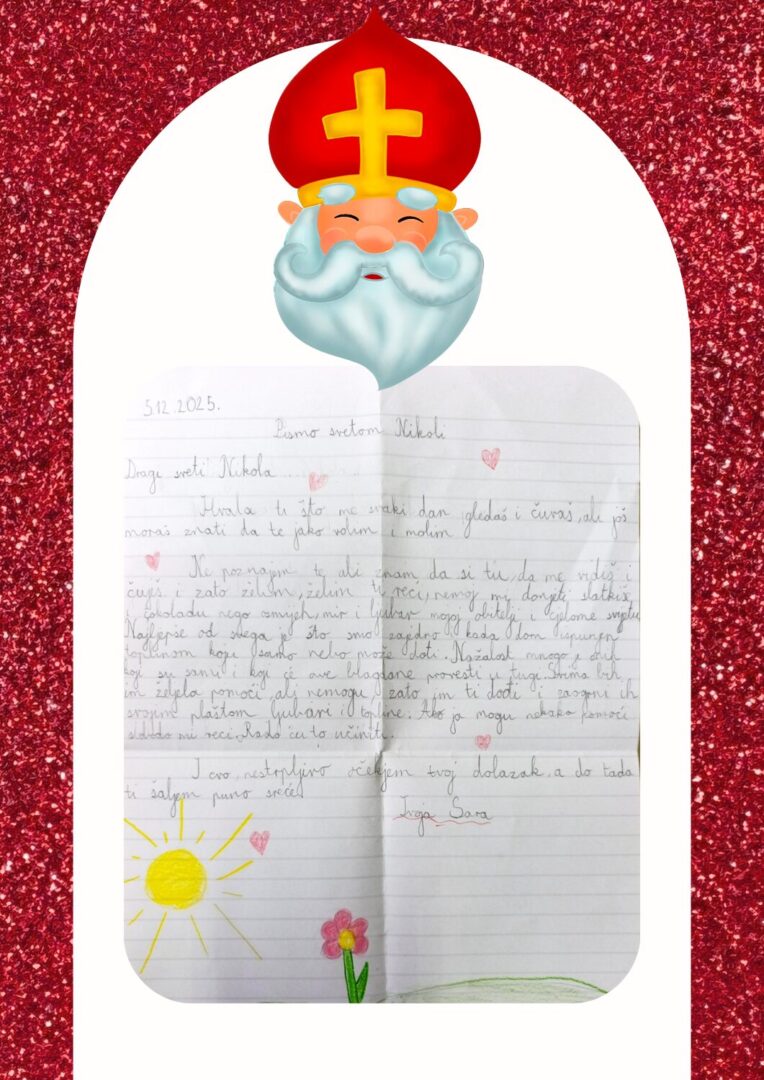 5.12.2025.
Pismo svetom Nikoli
Dragi sveti Nikola
Hvala ti što me svaki dan gledaš i čuvaš, ali još
moraš znati da te jako volim i molim
Ne poznajem te ali znam da si tu, da me vidiš i
čuješ i zato želim, želim ti reći, nemoj mi donjeti slatkiše
i čokoladu nego osmjeh, mir i ljubav mojoj obitelji i cjelome svijetu
Najlepše od svega je što smo zajedno i kada dom ispunjen
toplinom koju samo nebo može dati. Nažalost mnogo je onih
koji su sami i koji će ove blagdane provesti u tugi. Svima bih
im željela pomoći ali nemogu, zato im ti dođi i zaogrni ih
svojim plaštom ljubavi i topline. Ako ja mogu nekako pomoći
slobodno mi reci. Rado ću to učiniti.
I evo, nestrpljivo očekjem tvoj dolazak, a do tada
ti šaljem puno sreće.
Tvoja Sara